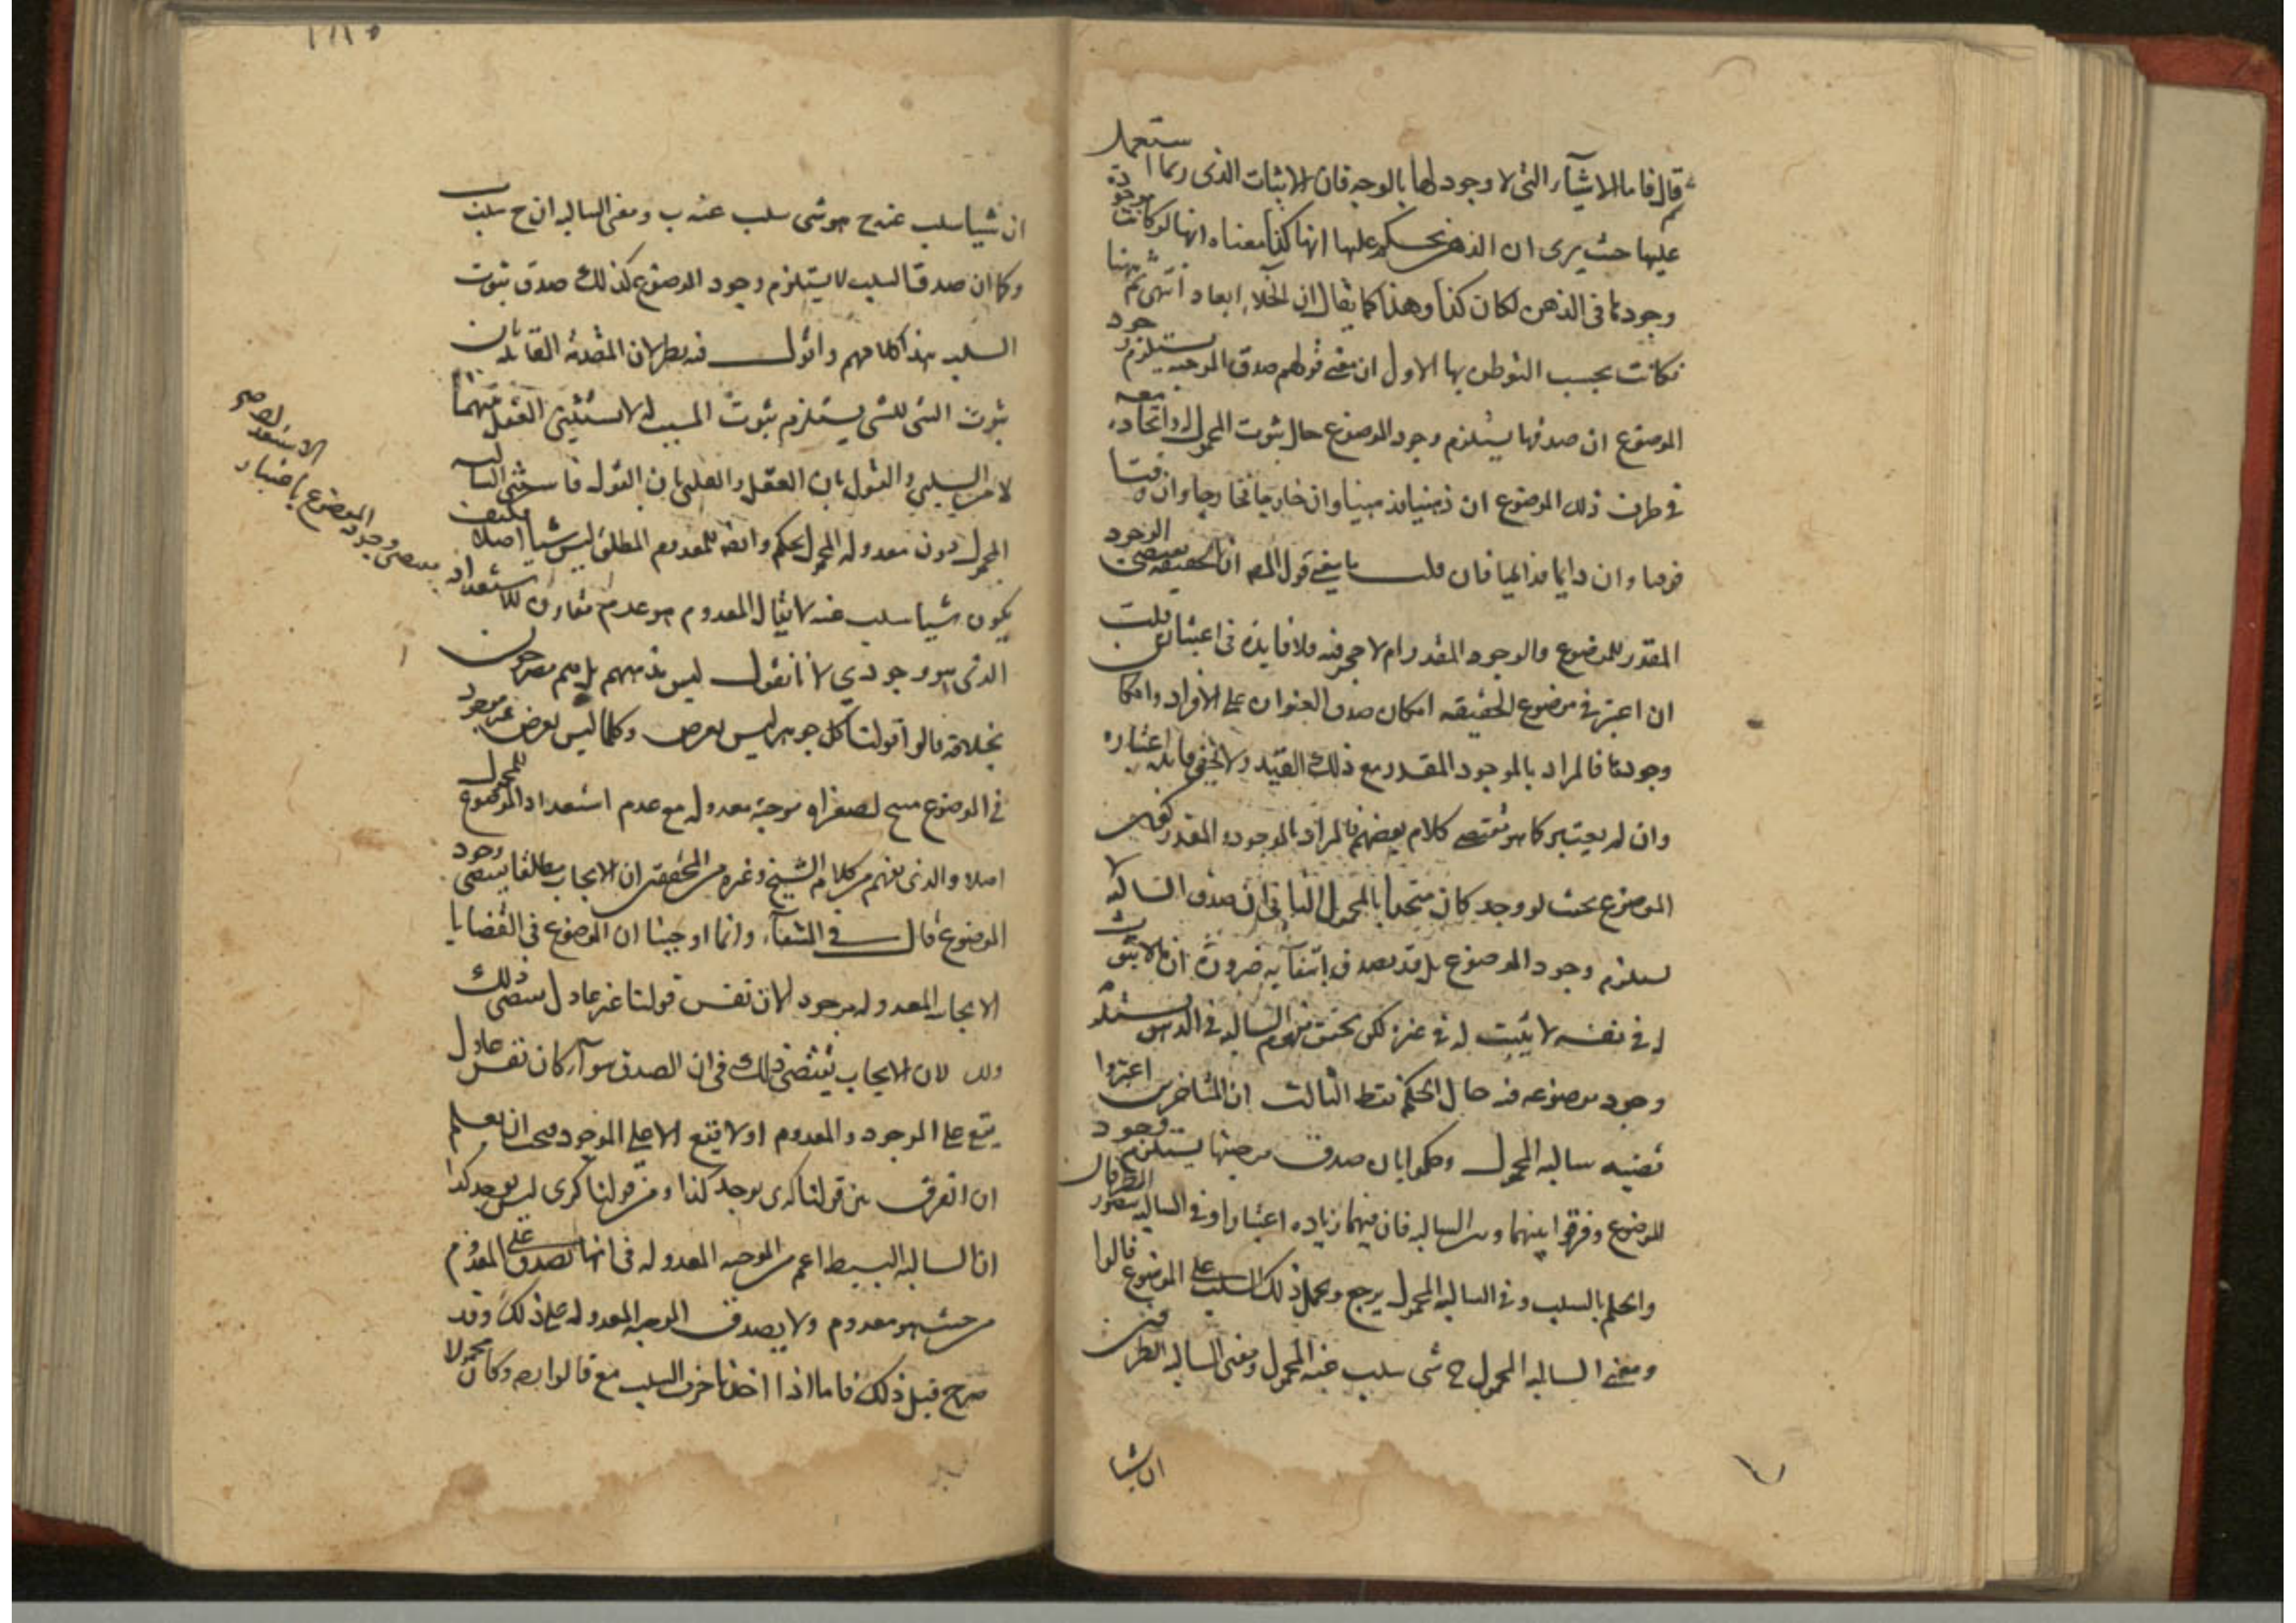 قال فاما الاشيآء التى لا وجود لها بالوجه فان الاثبات الذى ربما استعمل
عليها حيث يرى ان الذهن يحكم عليها انها كذا معناه انها لو كانت موجودة
وجودها فى الذهن لكان كذا وهذا كما يقال ان الخلاء ابعاد انتهى ثم ههنا
نكات يجب التوطن بها الاول ان معنى قولهم صدق الموجبه يستلزم وجود
الموضوع ان صدقها يستلزم وجود الموضوع حال ثبوت المحمول له واتحاده معه
فى ظرف ذلك الموضوع ان ذهنيا فذهنيا وان خارجيا فخارجيا وان وقتا
فوقتا وان دايما فدايما فان قلت ما معنى قول المص ان الحقيقه تقتضى الوجود
المقدر للموضوع والوجود المقدر ام لا حجر فيه ولا فايدة فى اعتباره قلت
ان اعتبر فى موضوع الحقيقه امكان صدق العنوان على الافراد وامكان
وجودها فالمراد بالموجود المقدر مع ذلك القيد ولا يخفى فايدة اعتباره
وان لم يعتبر كما هو مقتضى كلام بعضهم فالمراد بالموجود المقدر كون
الموضوع بحيث لو وجد كان متحدا بالمحمول الثانى ان صدق السالبه لا
يستلزم وجود الموضوع بل قد يصدق بانتفآيه ضرورة ان ما لا يثبت
له فى نفسه لا يثبت له فى غيره لكن تحقق مفهوم السالبه فى الذهن يستلزم
وجود موضوعه فيه حال الحكم فقط الثالث ان المتاخرين اعتبروا
قضيه سالبه المحمول وحكموا بان صدق موجبتها يستلزم وجود
الموضوع وفرقوا بينهما وبين السالبه فان فيهما زيادة اعتبار اذ فى السالبه يتصور الطرفان
والحكم بالسلب وفى السالبه المحمول يرجع ويحمل ذلك السلب على الموضوع قالوا
ومعنى السالبه المحمول ج شى سلب عنه المحمول ومعنى السالبه الطرفين
ان شيا
ان شيا سلب عنه ج هو شى سلب عنه ب ومعنى السالبه ان ج سلب
وكما ان صدق السلب لا يستلزم وجود الموضوع كذلك صدق ثبوت
السلب هذا كلامهم واقول فيه نظر لان المقدمة القايلة بان
ثبوت الشى للشى يستلزم ثبوت المثبت له لا يستثنى العقل منها
لا من السلبى والقول بان العقل
المحمول دون معدوله المحمول تحكم وايضا المعدوم المطلق ليس شيا اصلا فكيف
يكون شيا سلب عنه لا يقال المعدوم هو عدم مقارن للاستعداد
الذى هو وجودي لانا نقول ليس مذهبهم بل هم مصرحون
بخلافه قالوا قولنا كل جوهر ليس بعرض وكلما ليس بعرض غير موجود
فى الموضوع صغراه موجبة معدوله مع عدم استعداد الموضوع للمحمول
اصلا والذى يفهم من كلام الشيخ وغيره من المحققين ان الايجاب مطلقا يقتضى وجود
الموضوع قال فى الشفآء وانما اوجبنا ان الموضوع فى القضايا
الايجابيه المعدوله موجود لا لان نفس قولنا غير عادل يقتضى ذلك
ولكن لان الايجاب يقتضى ذلك فى ان الصدق سوآء كان نفس عادل
يقع على الموجود والمعدوم او لا يقع الا على الموجود فيجب ان يعلم
ان الفرق بين قولنا كذى يوجد كذا وبين قولنا كذى ليس يوجد كذا
ان السالبه البسيطه اعم من الموجبه المعدوله فى انها تصدق على المعدوم
من حيث هو معدوم ولا يصدق الموجبه المعدوله على ذلك وقد
صرح قبل ذلك فاما اذا اخذنا حرف السلب مع وكان محمولا
الاستعداد
يقتضى وجود الموضوع باعتبار